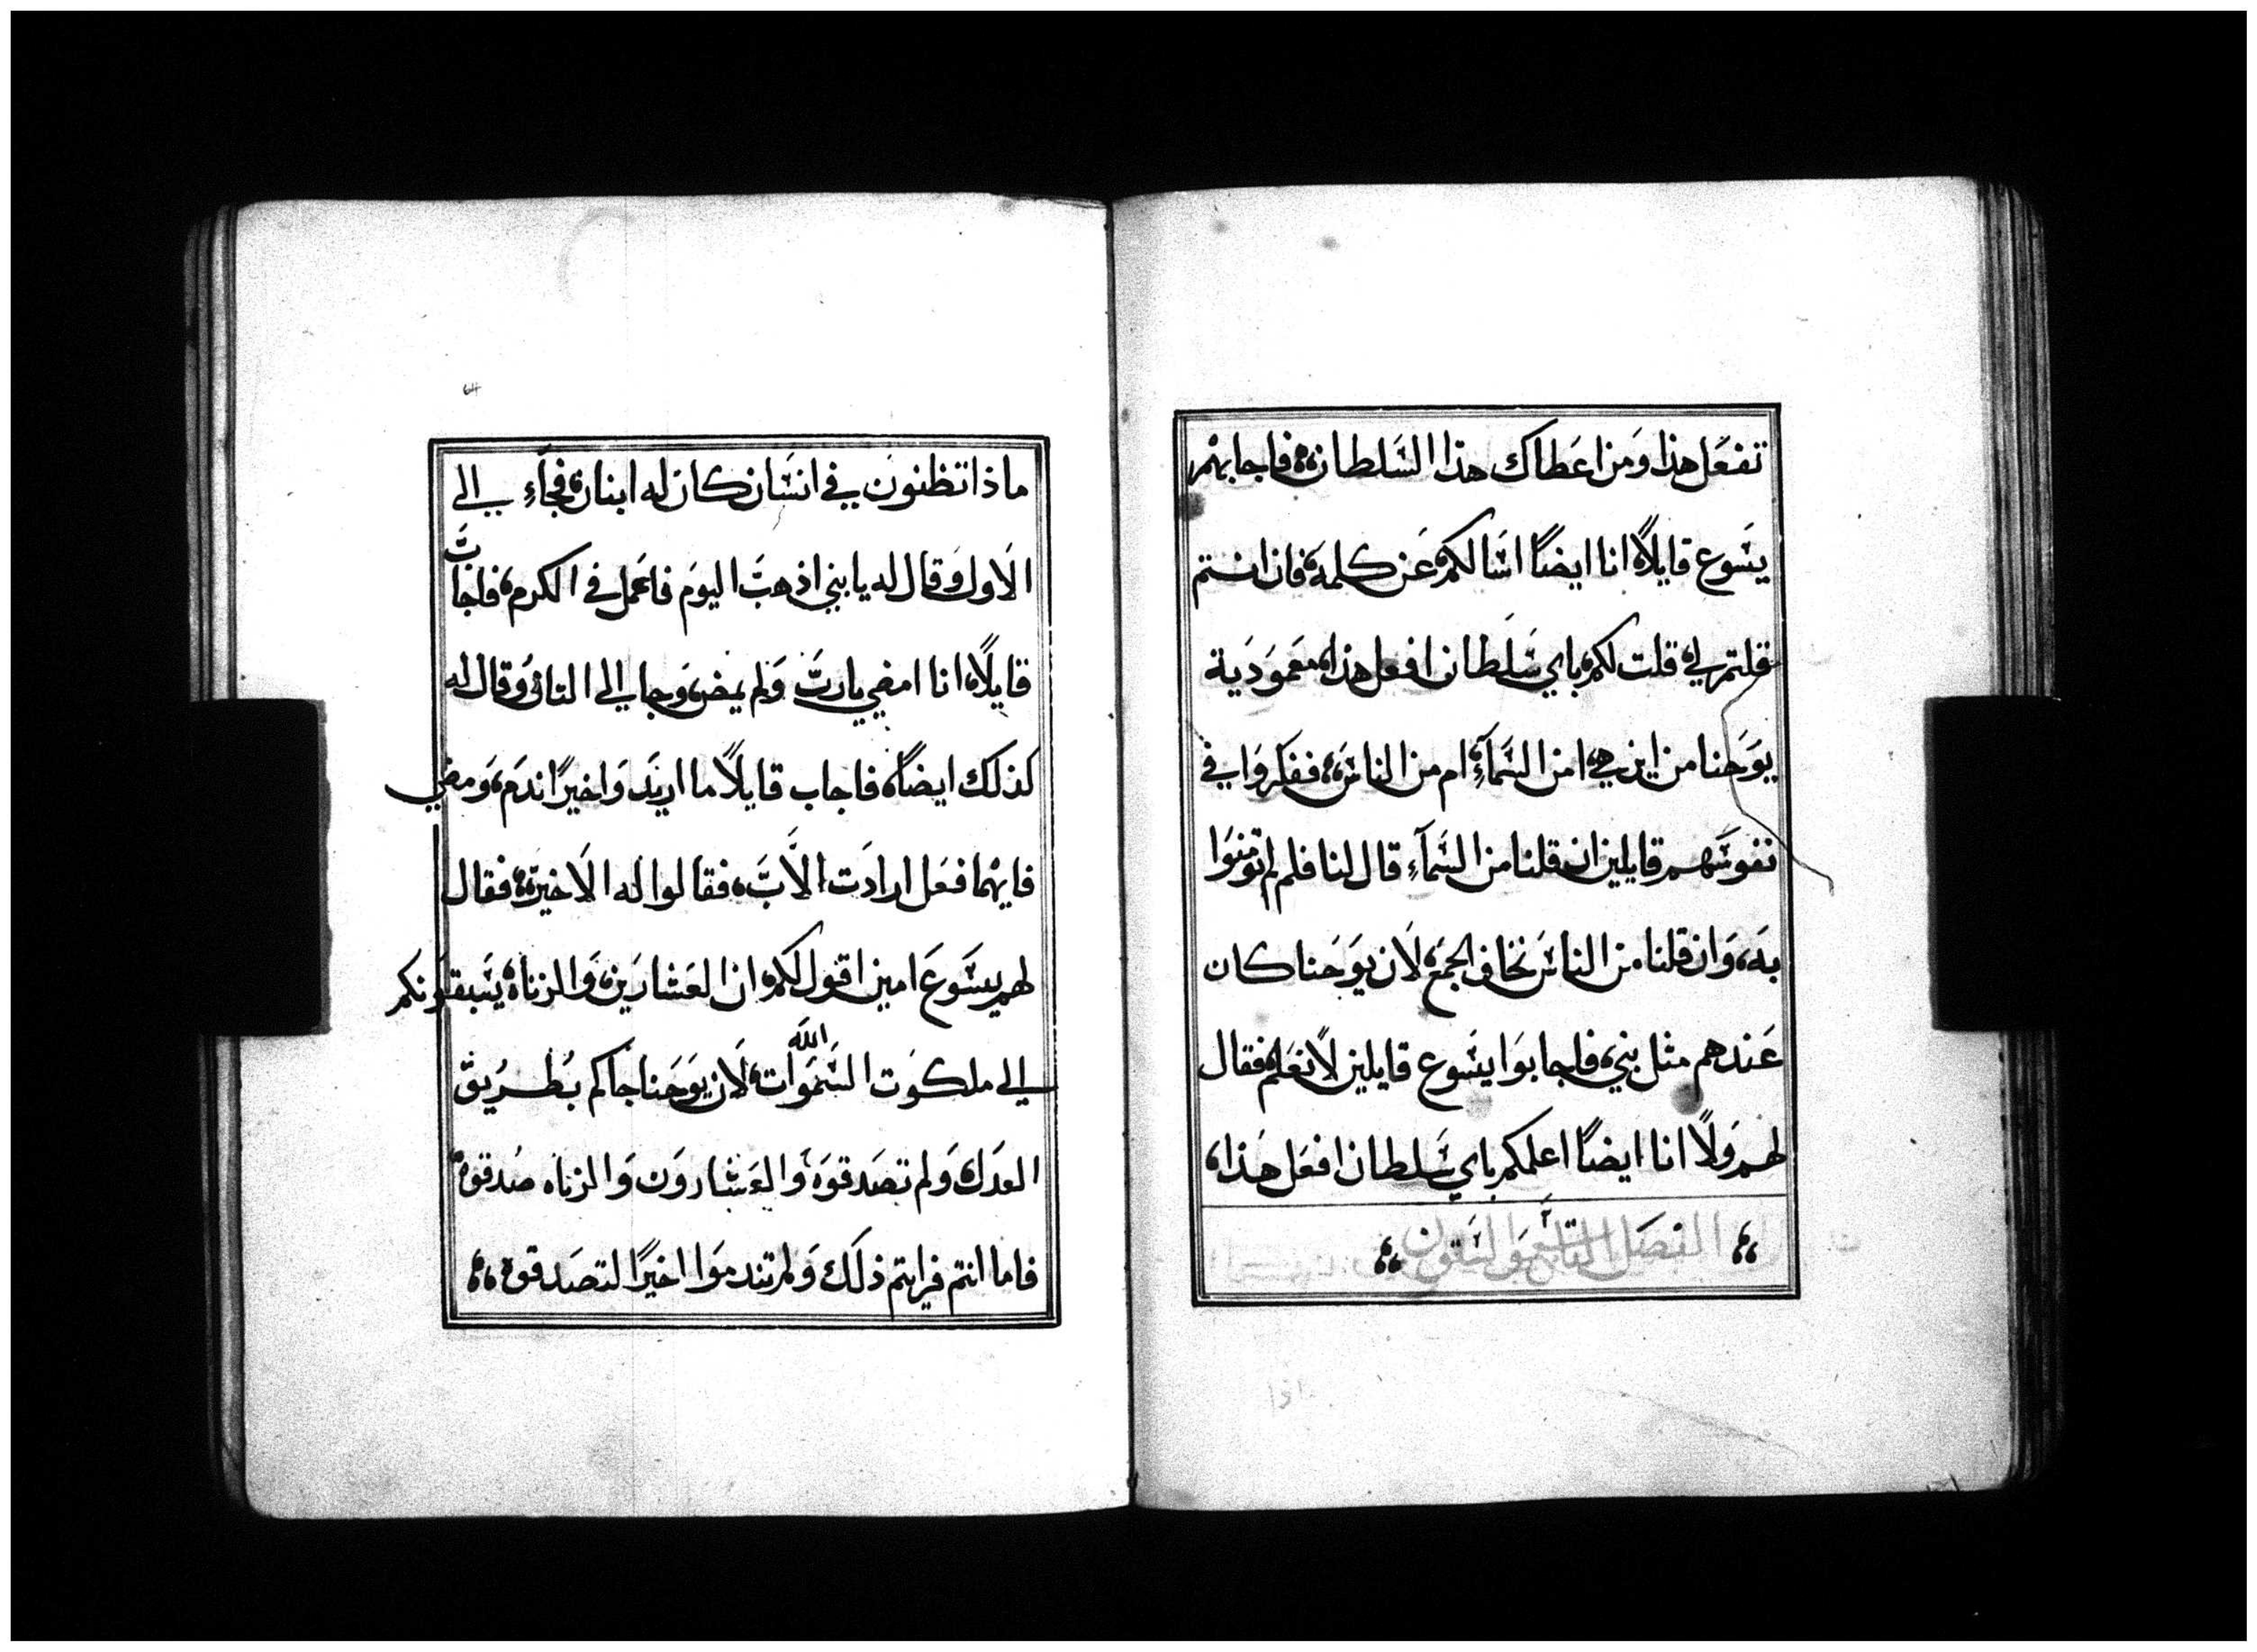 تفعل هذا ومن اعطاك هذا السلطان، فاجابهم
يسوع قايلاً، انا ايضاً اسالكم، عن كلمه، فان انتم
قلتم لي، قلت لكم، باي سلطان افعل هذا، معمودية
يوحنا من اين هي، امن السمآءِ، ام من الناس، ففكروا في
نفوسهم قايلين ان قلنا من السمآءِ قال لنا فلم لم تومنوا
به، وان قلنا من الناس نخاف الجمع، لان يوحنا كان
عندهم مثل نبي، فاجابوا يسوع قايلين لا نعلم، فقال
لهم ولا انا ايضاً اعلمكم باي سلطان افعل هذا،
الفصل التاسع والستون
64
ماذا تظنون في انسان كان له ابنان، فجآءِ الي
الاول وقال له يا بني اذهب اليوم فاعمل في الكرم، فاجاب
قايلاً، انا امضي يا رب ولم يمض، وجا الي الثاني وقال له
كذلك ايضاً، فاجاب قايلاً ما اريد واخيراً ندم، ومضي
فايهما فعل ارادت الاب، فقالوا له الاخير، فقال
لهم يسوع امين اقول لكم، ان العشارين، والزناه، يسبقونكم
الله
الي ملكوت السموات، لان يوحنا جاكم بطريق
العدل، ولم تصدقوه، والعشارون والزناه صدقوه
فاما انتم فرايتم ذلك ولم تندموا اخيراً لتصدقوه،